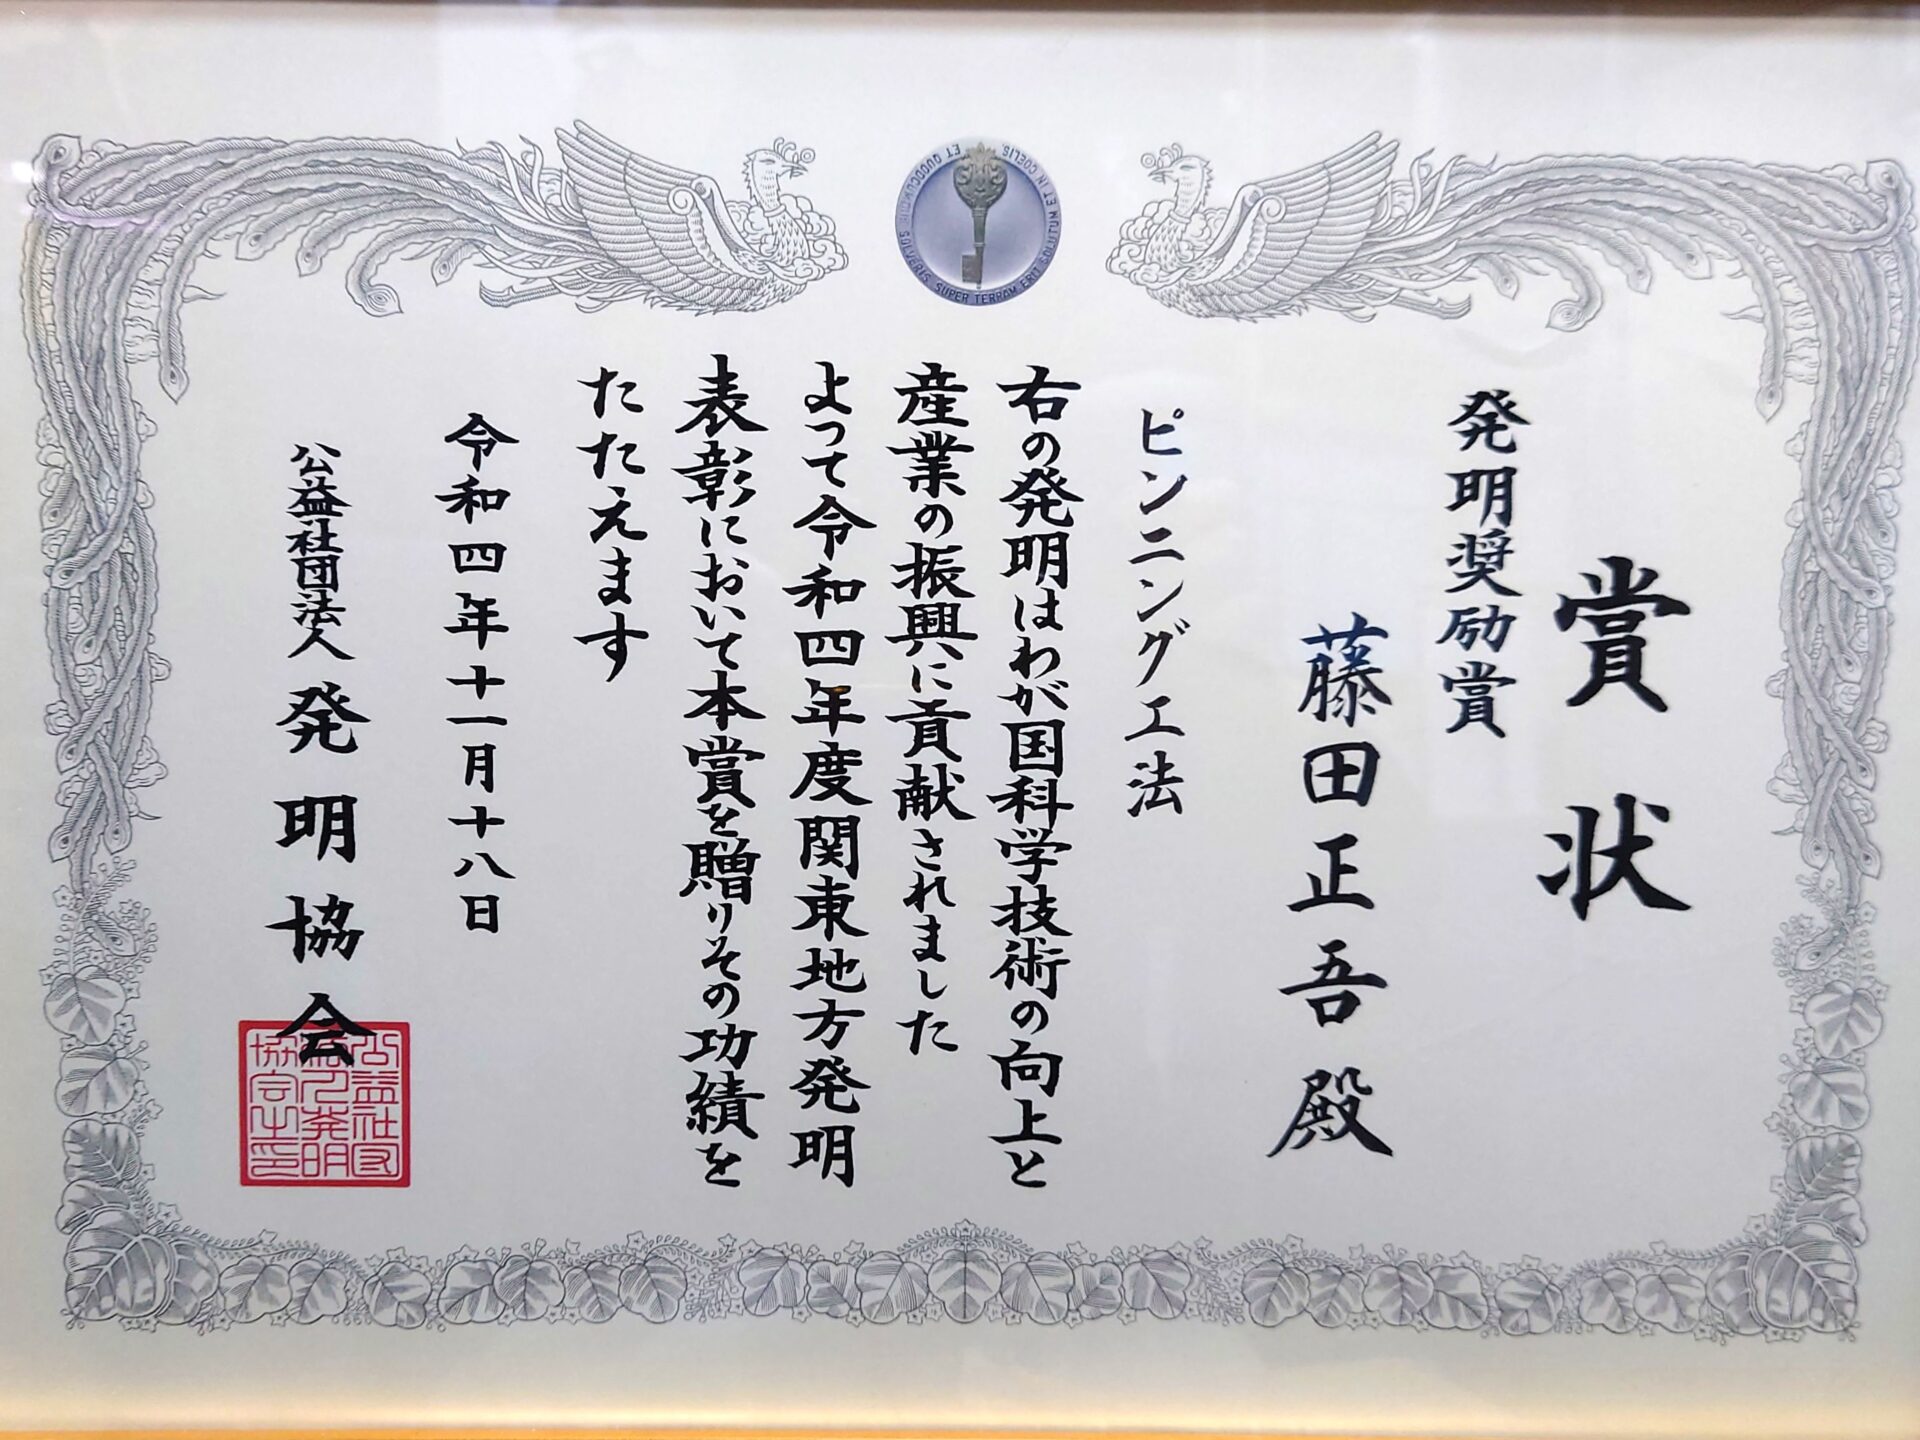 賞状
発明奨励賞
藤田正吾殿
ピンニング工法
右の発明はわが国科学技術の向上と
産業の振興に貢献されました
よって令和四年度関東地方発明
表彰において本賞を贈りその功績を
たたえます
令和四年十一月十八日
公益社団法人 発明協会
ET QUODCUMQUE SOLVERIS SUPER TERRAM ERIT SOLUTUM ET IN COELIS.